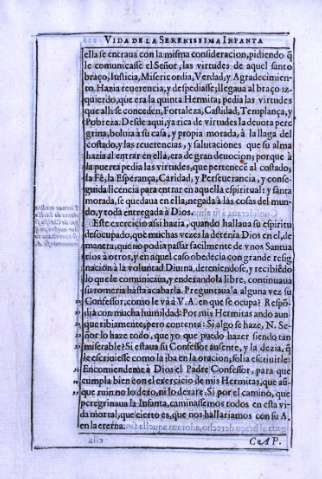 VIDA DE LA SERENISSIMA INFANTA
ella se entraua con la misma consideracion, pidiendo q̃
le comunicasse el Señor, las virtudes de aquel santo
braço, Iusticia, Misericordia, Verdad, y Agradecimien-
to. Hazia reuerencia, y despediase; llegaua al braço iz-
quierdo, que era la quinta Hermita; pedia las virtudes
que alli se conceden, Fortaleza, Castidad, Templança, y
Pobreza. Desde aqui, ya rica de virtudes la deuota pere
grina, boluia a su casa, y propia morada, à la llaga del
costado, y las reuerencias, y salutaciones que su alma
hazia al entrar en ella, era de gran deuocion; porque à
la puerta pedia las virtudes, que pertenecē al costado,
la Fè, la Esperança, Caridad, y Perseuerancia, y conse-
guida licencia para entrar en aquella espiritual; y santa
morada, se quedaua en ella, negada à las cosas del mun-
do, y toda entregada à Dios.
Este exercicio assi hazia, quando hallaua su espiritu
desocupado, que muchas vezes la detenia Dios en el, de
manera, que no podia passar facilmente de vnos Santua
rios à otros, y en aquel caso obedecia con grande resig-
nacion à la voluntad Diuina, deteniendose, y recibiēdo
lo que le comunicaua, y endezandola libre, continuaua
su romeria hasta acabarla. Preguntaua la alguna vez su
Confessor, como le và à V. A. en que se ocupa? Respō-
dia con mucha humildad: Por mis Hermitas ando aun-
que tibiamente, pero contenta: Si algo se haze, N. Se-
ñor lo haze todo, que yo que puedo hazer siendo tan
miserable? Si estaua su Confessor ausente, y la dezia, q̃
le escriuiesse como la iba en la oracion, solia escriuirle:
Encomiendeme à Dios el Padre Confessor, para que
cumpla bien con el exercicio de mis Hermitas, que aũ-
que ruin no lo dexo, ni lo dexarè. Si por el camino, que
peregrinaua la Infanta, caminassemos todos en esta vi-
da mortal, que cierto es, que nos hallariamos con su A.
en la eterna.
CAP.